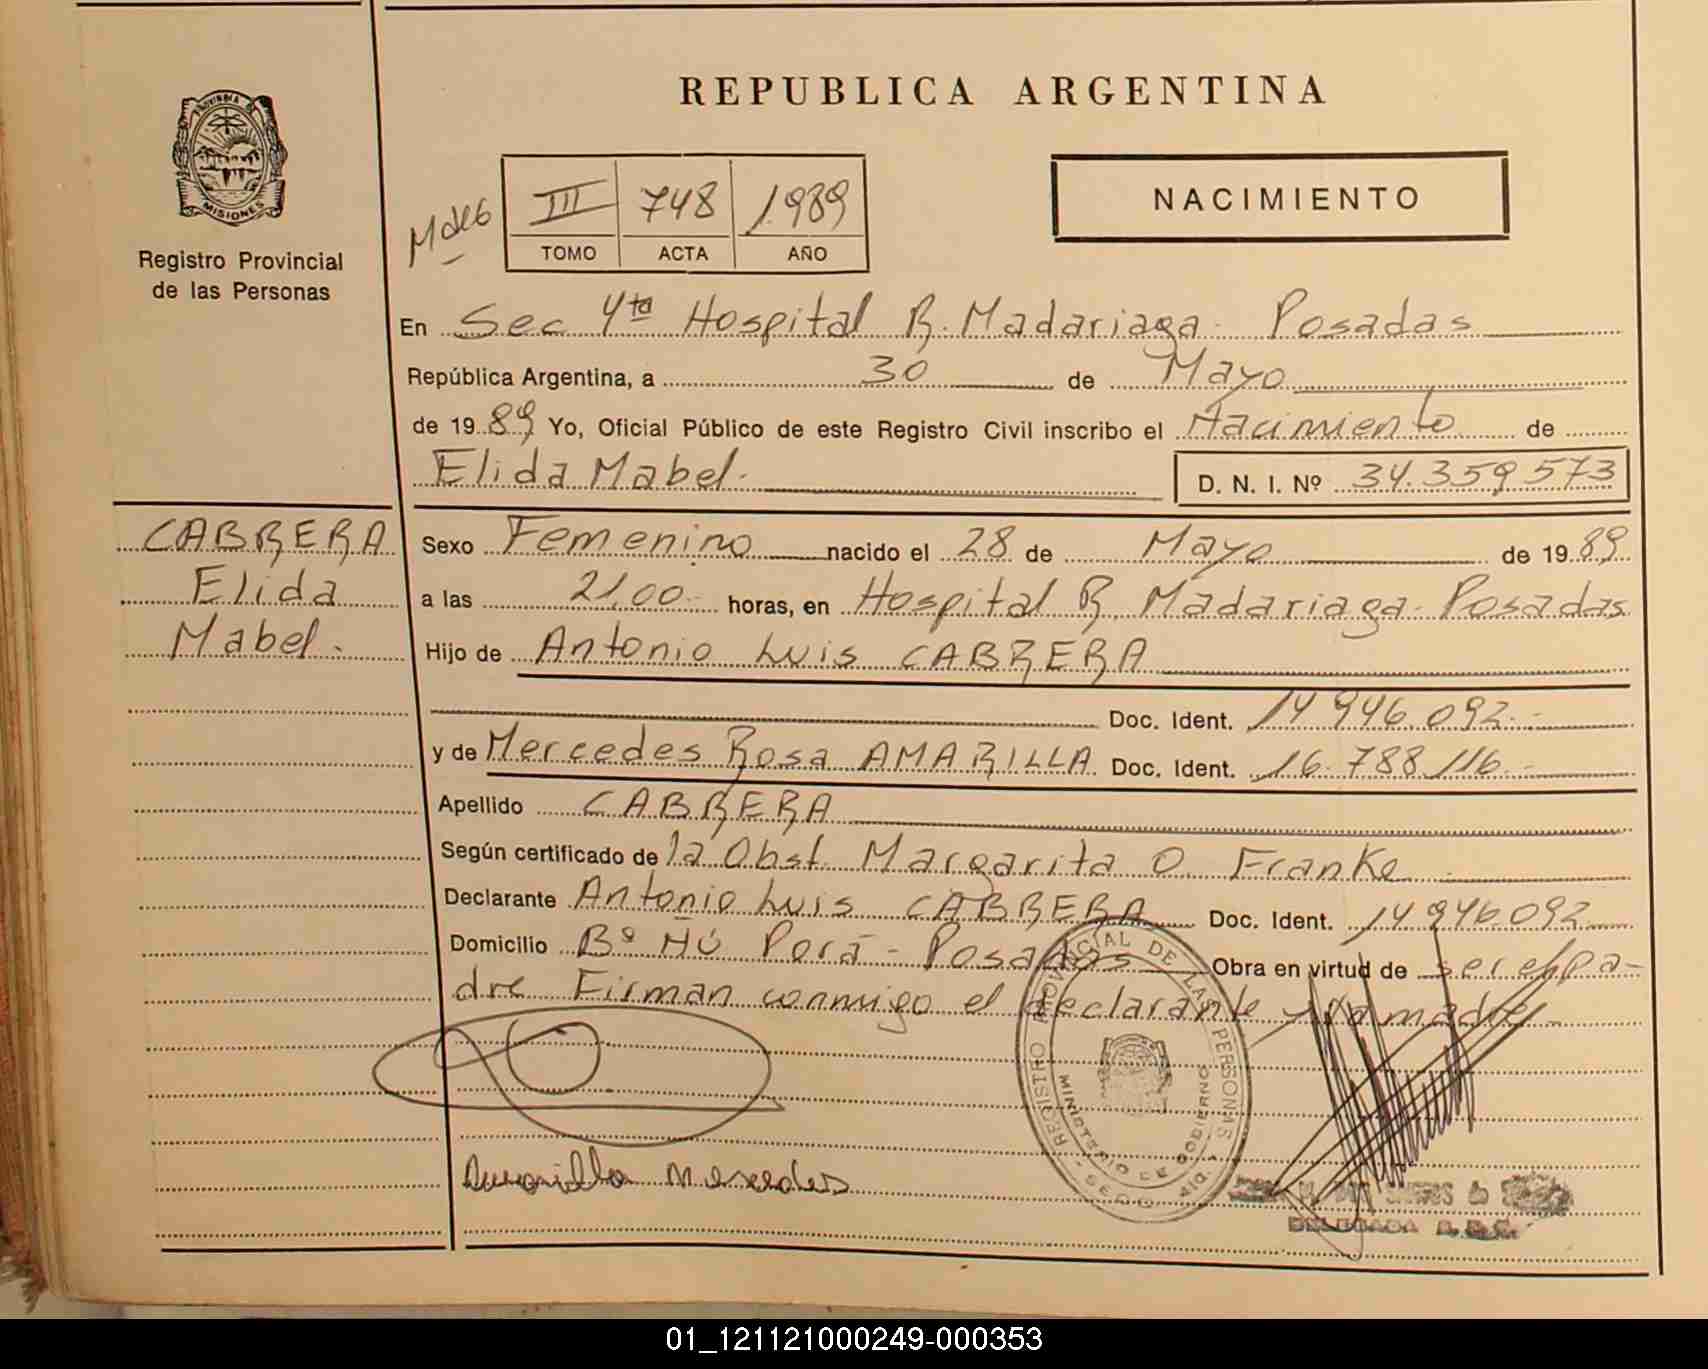 REPUBLICA ARGENTINA
PROVINCIA DE
MISIONES
Registro Provincial
de las Personas
NACIMIENTO
III 748 1989
TOMO ACTA AÑO
En Sec 4ta Hospital R. Madariaga - Posadas
República Argentina, a 30 de Mayo
de 1989 Yo, Oficial Público de este Registro Civil inscribo el Nacimiento de
Elida Mabel.
D. N. I. Nº 34.359.573
CABRERA
Elida
Mabel.
Sexo Femenino nacido el 28 de Mayo de 1989
a las 21,00 horas, en Hospital R. Madariaga - Posadas
Hijo de Antonio Luis CABRERA
Doc. Ident. 14.946.092.-
y de Mercedes Rosa AMARILLA Doc. Ident. 16.788.116.-
Apellido CABRERA
Según certificado de la Obst. Margarita O. Franke
Declarante Antonio Luis CABRERA Doc. Ident. 14.946.092
Domicilio Bº Ñú Porá - Posadas Obra en virtud de ser el pa-
dre Firman conmigo el declarante y la madre -
REGISTRO PROVINCIAL DE LAS PERSONAS
MINISTERIO DE GOBIERNO
Amarilla Mercedes
DELEGADA
01_121121000249-000353